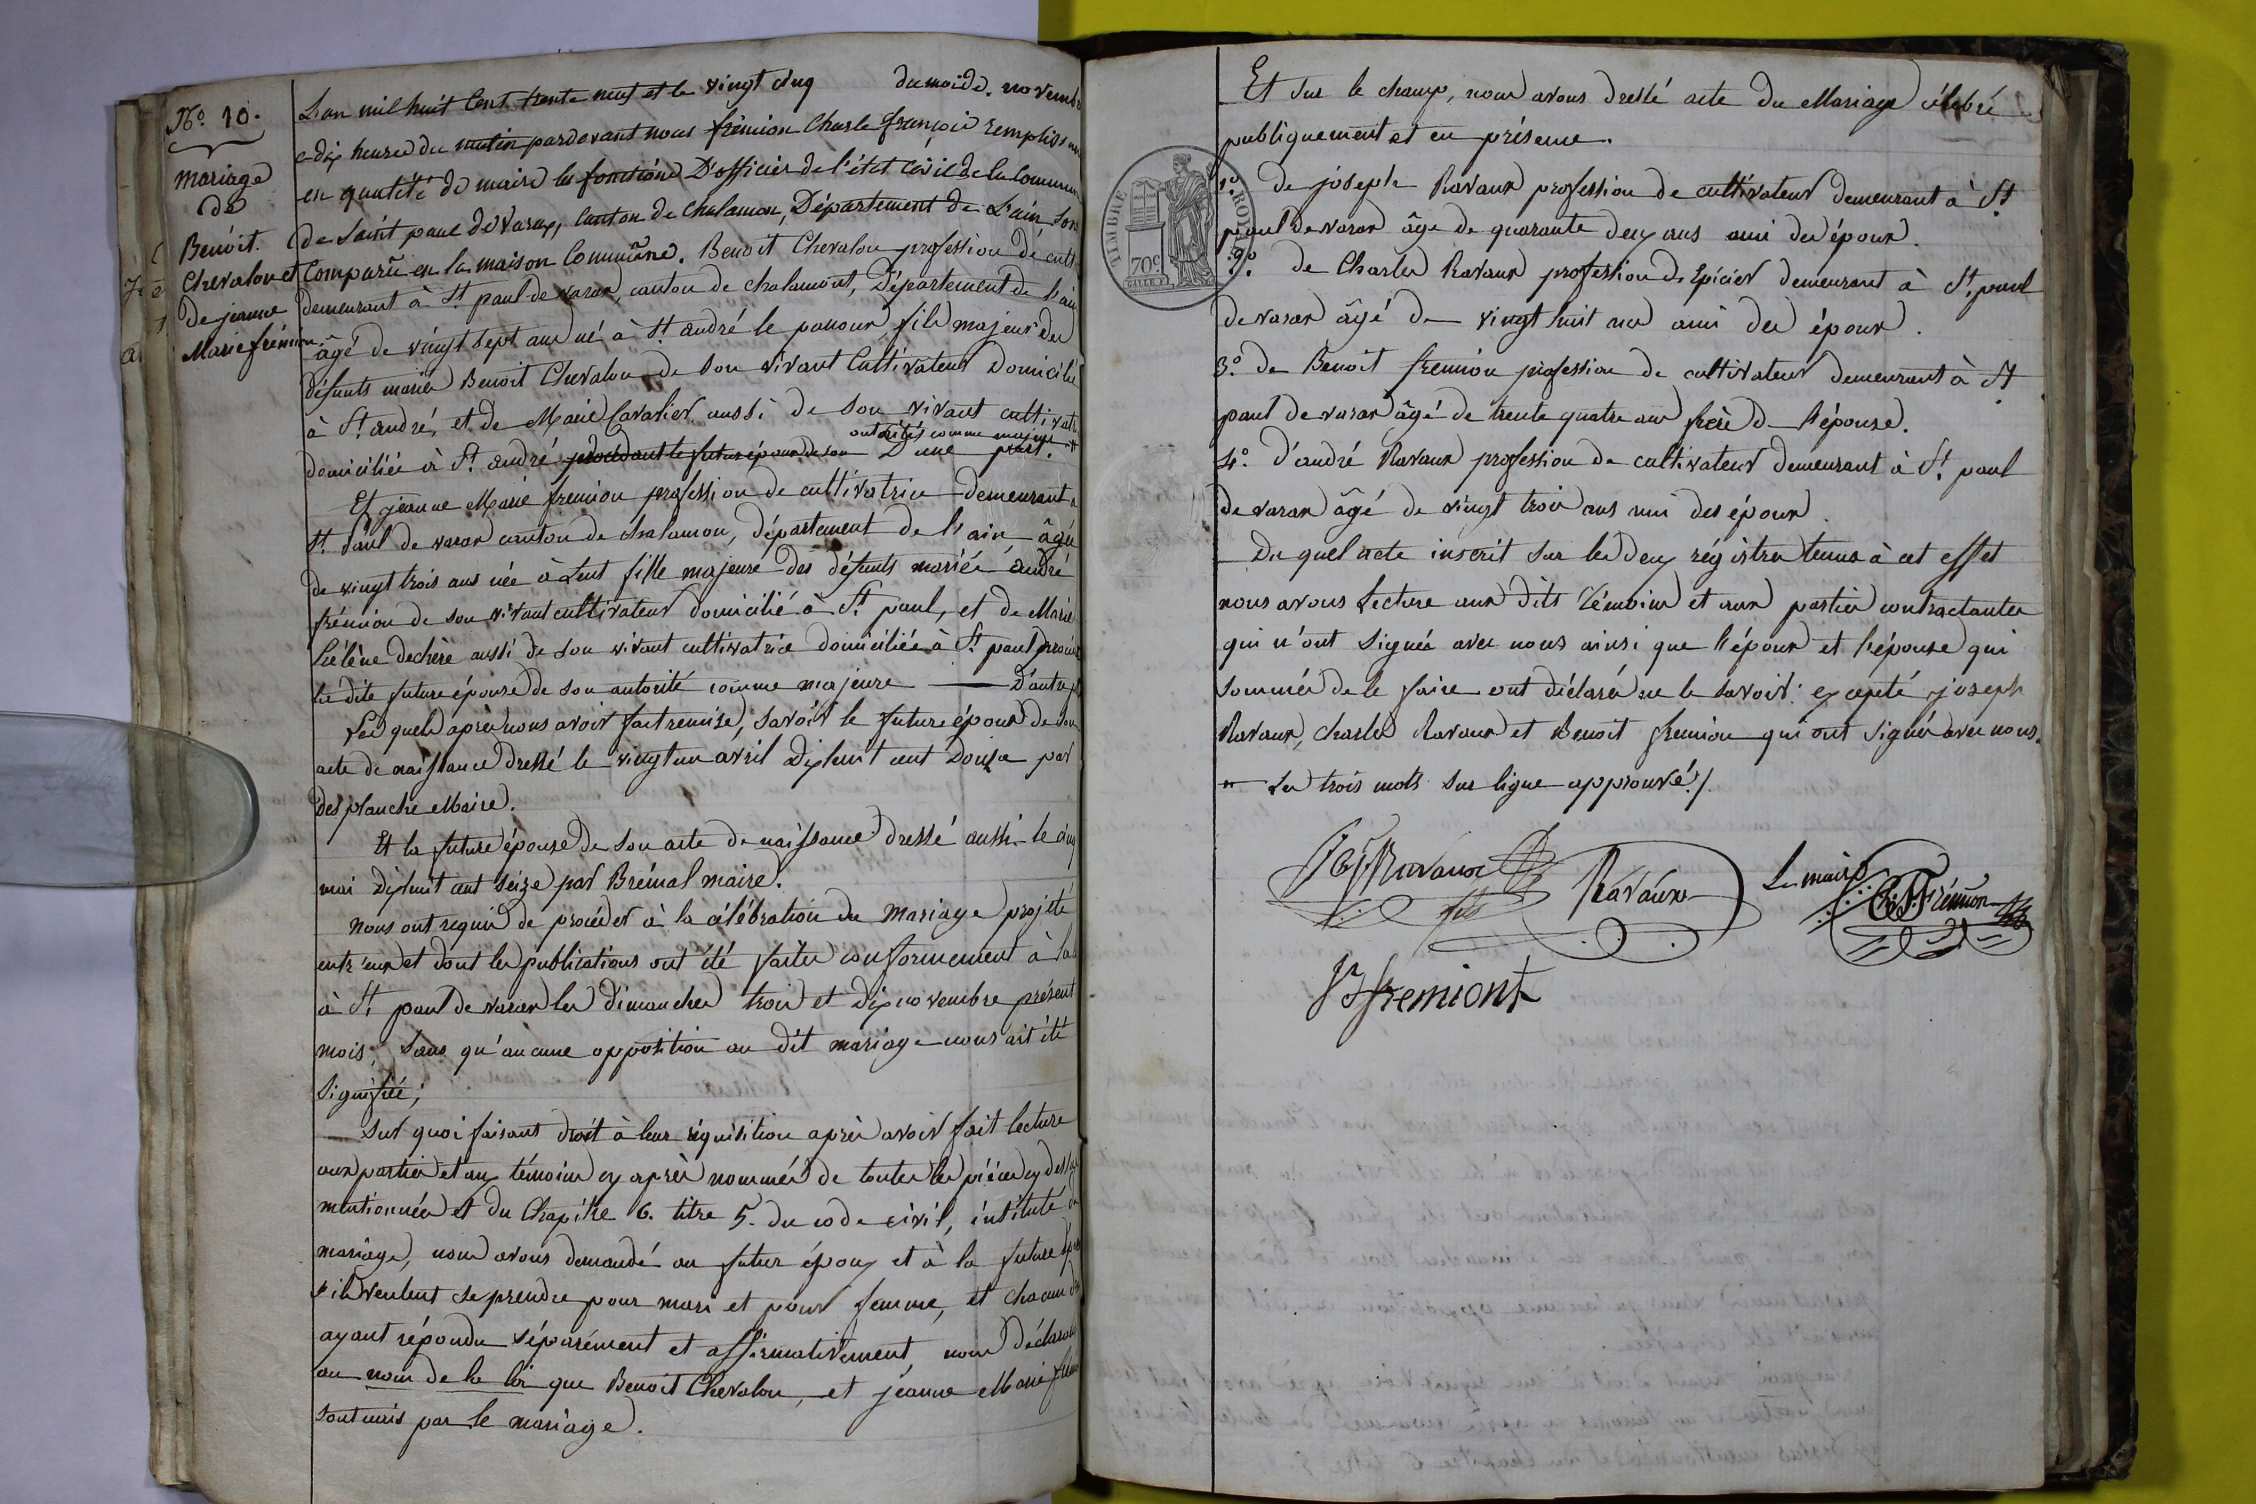 N.º 10.
Mariage
de
Benoit
Chevalon et
de jeanne
Marie frémion
L'an mil huit cent trente neuf et le vingt cinq du mois de novembre
a dix heures du matin pardevant nous frémion Charle françois remplissant
en qualité de maire les fonctions D'officier de l'état civil de la Commune
de Saint paul de Varax, Canton de Chalamon, Département de L'ain, Sont
Comparu en la maison Commune. Benoit Chevalon profession de cult
demeurant à St. paul de varax, canton de chalamont, Département de l'ain
âgé de vingt sept ans né à St. andré le panoux fils majeur des
défunts mariés Benoit Chevalon de Son vivant Cultivateur Domicilié
à St. andré, et de Marie Cavarlier aussi de Son vivant cultivatr
autorités comme majeur
domiciliée à St. andré procédant le futur époux de son D'une part.
Et jeanne Marie fremion profession de cultivatrice demeurant à
St. Paul de varax canton de chalamon, département de l'ain, âgée
de vingt trois ans née à Lent fille majeure des défunts mariés andré
frémion de son vivant cultivateur domicilié à St. paul, et de Marie
hélène dechère aussi de son vivant cultivatrice domiciliée à St. paul
la dite future épouse de son autorité comme majeure D'autre p
Les quels après nous avoir fait remise, savoir le future époux de son
acte de naissance dressé le vingt un avril Dixhuit cent Douze par
Desplanche Maire.
Et la future épouse de Son acte de naissance dressé aussi le cinq
mai Dixhuit cent seize par Brémal maire.
Nous ont requis de procéder à la célébration du Mariage projetté
entr'eux et dont les publications ont été faites conformement à la
à St. paul de varax les dimanches trois et dix novembre présent
mois, Sans qu'aucune opposition au dit mariage nous ait été
Signifiée;
Sur quoi faisant droit à leur réquisition après avoir fait lecture
aux parties et aux témoins cy après nommés de toutes les pièces cy dessus
mentionnées et du Chapitre 6. titre 5. du code civil, intitulé du
mariage, nous avons demandé au futur époux et à la future épou
s'ils veulent se prendre pour mari et pour femme, et chacun d'
ayant répondu séparément et affirmativement, nous Déclarons
au nom de la loi que Benoit Chevalon, et jeanne Marie
Sont unis par le mariage.
Et sur le champ, nous avons dressé acte du Mariage célébré
publiquement et en présence.
1º. de joseph Ravaux profession de cultivateur demeurant à St.
paul de varax âgé de quarante deux ans ami des époux.
2º. de Charles Ravaux profession de Epicier demeurant à St. paul
de varax âgé de vingt huit ans ami des époux.
3º. de Benoit fremion profession de cultivateur demeurant à St.
paul de varax âgé de trente quatre ans frère de l'épouse.
4º. d'andré Ravaux profession de cultivateur demeurant à St. paul
de varax âgé de vingt trois ans ami des époux.
Du quel acte inscrit sur les deux régistres tenus à cet effet
nous avons Lecture aux dits témoins et aux parties contractantes
qui n'ont signés avec nous ainsi que l'époux et l'épouse qui
sommés de le faire ont déclaré ne le savoir: excepté joseph
Ravaux, charles Ravaux et Benoit fremion qui ont signés avec nous.
Les trois mots sur ligne approuvé./.
Jos Ravaux
fils
Ravaux
Le maire
Ch. F. Frémion
fremiont
TIMBRE ROYAL
70c.